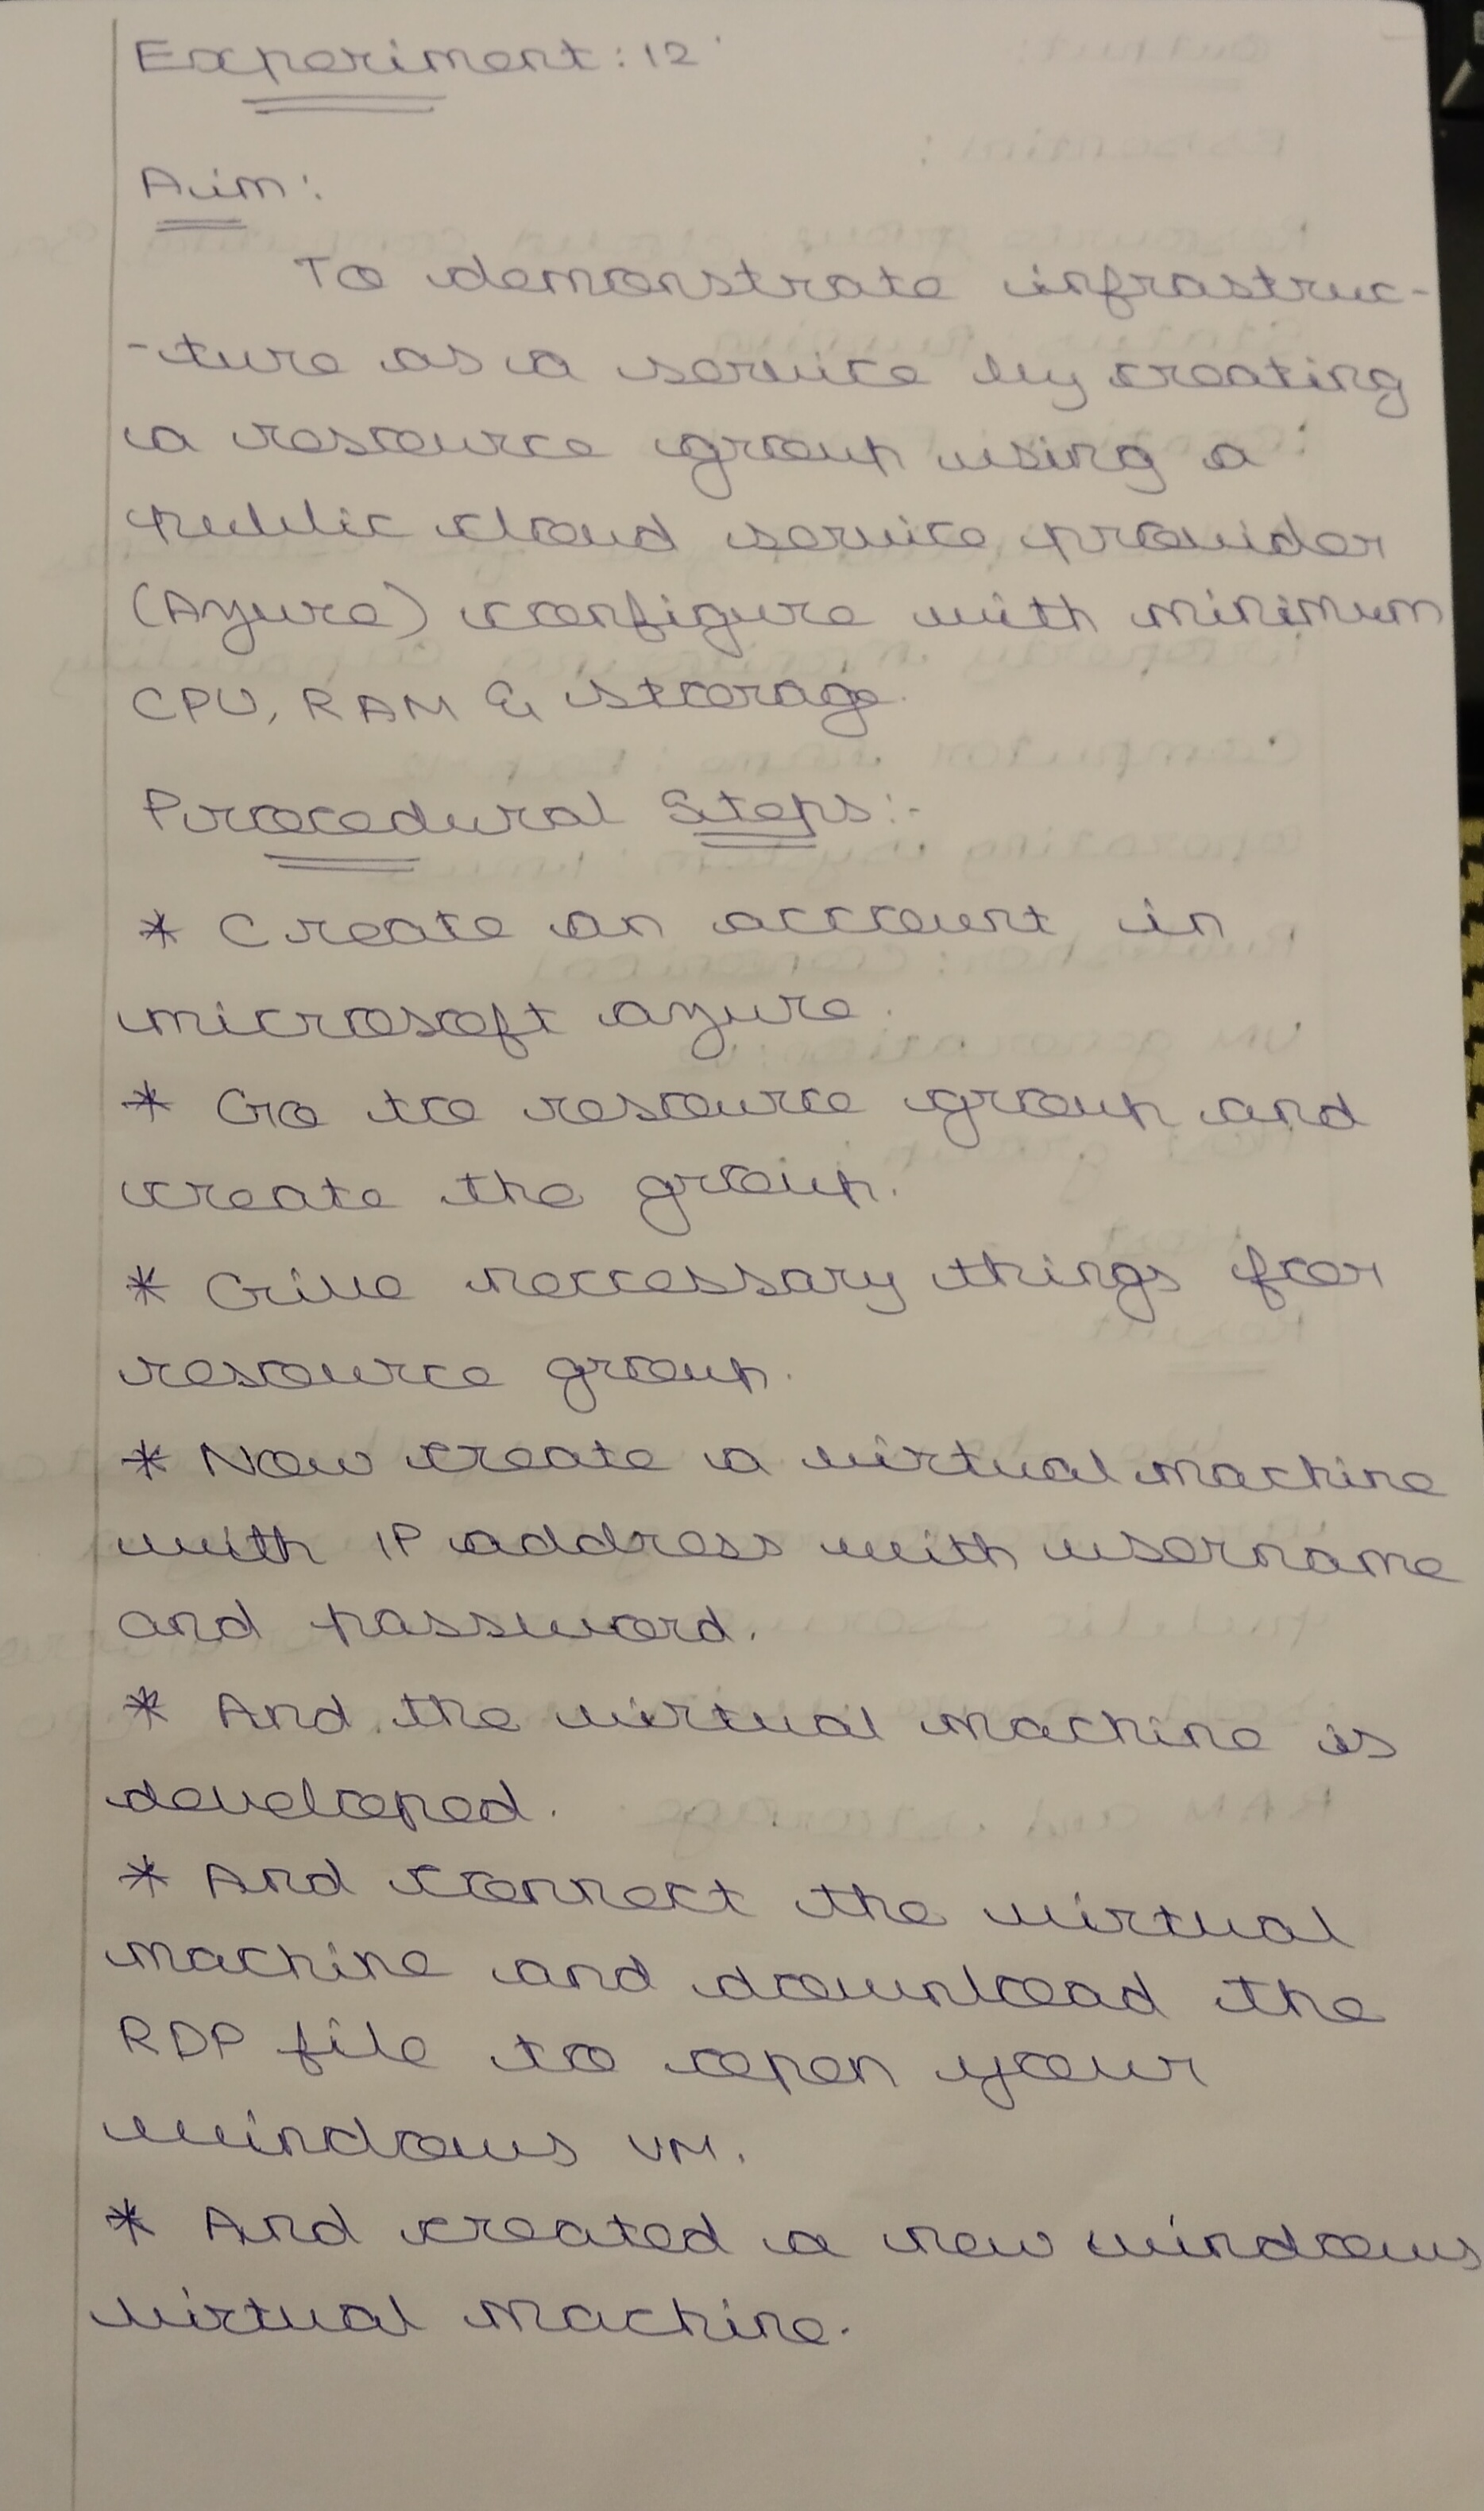 Experiment: 12
Aim:
To demonstrate infrastruc-
-ture as a service by creating
a resource group using a
public cloud service provider
(Azure) configure with minimum
CPU, RAM & storage.
Procedural Steps:-
* Create an account in
microsoft azure.
* Go to resource group and
create the group.
* Give neccessary things for
resource group.
* Now create a virtual machine
with IP address with username
and password.
* And the virtual machine is
developed.
* And connect the virtual
machine and download the
RDP file to open your
windows VM.
* And created a new windows
virtual machine.